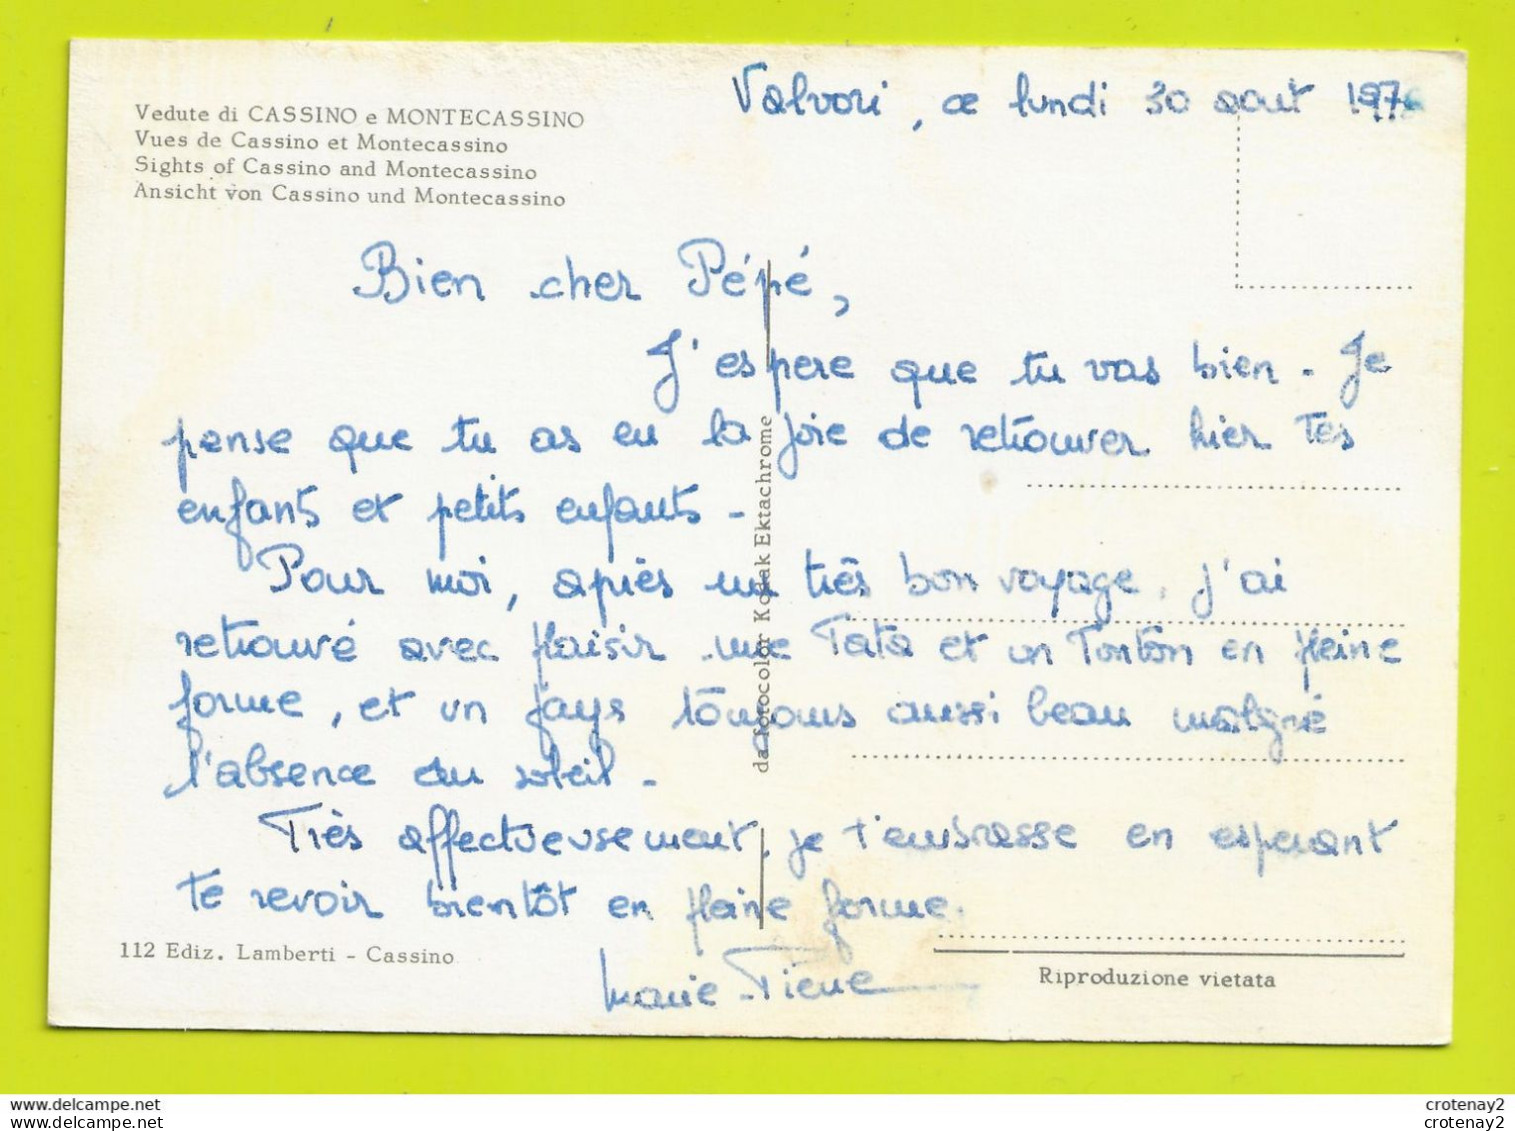 Vedute di CASSINO e MONTECASSINO
Vues de Cassino et Montecassino
Sights of Cassino and Montecassino
Ansicht von Cassino und Montecassino
Valvori, ce lundi 30 aout 1976
Bien cher Pépé,
J'espere que tu vas bien - Je
pense que tu as eu la joie de retrouver hier tes
enfants et petits enfants -
Pour moi, après un très bon voyage, j'ai
retrouvé avec plaisir une Tata et un Tonton en pleine
forme, et un pays toujours aussi beau malgré
l'absence du soleil -
Très affectueusement, je t'embrasse en esperant
te revoir bientôt en pleine forme.
Marie-Pierre
da fotocolor Kodak Ektachrome
112 Ediz. Lamberti - Cassino
Riproduzione vietata
delcampe.net
delcampe.net
crotenay2
crotenay2